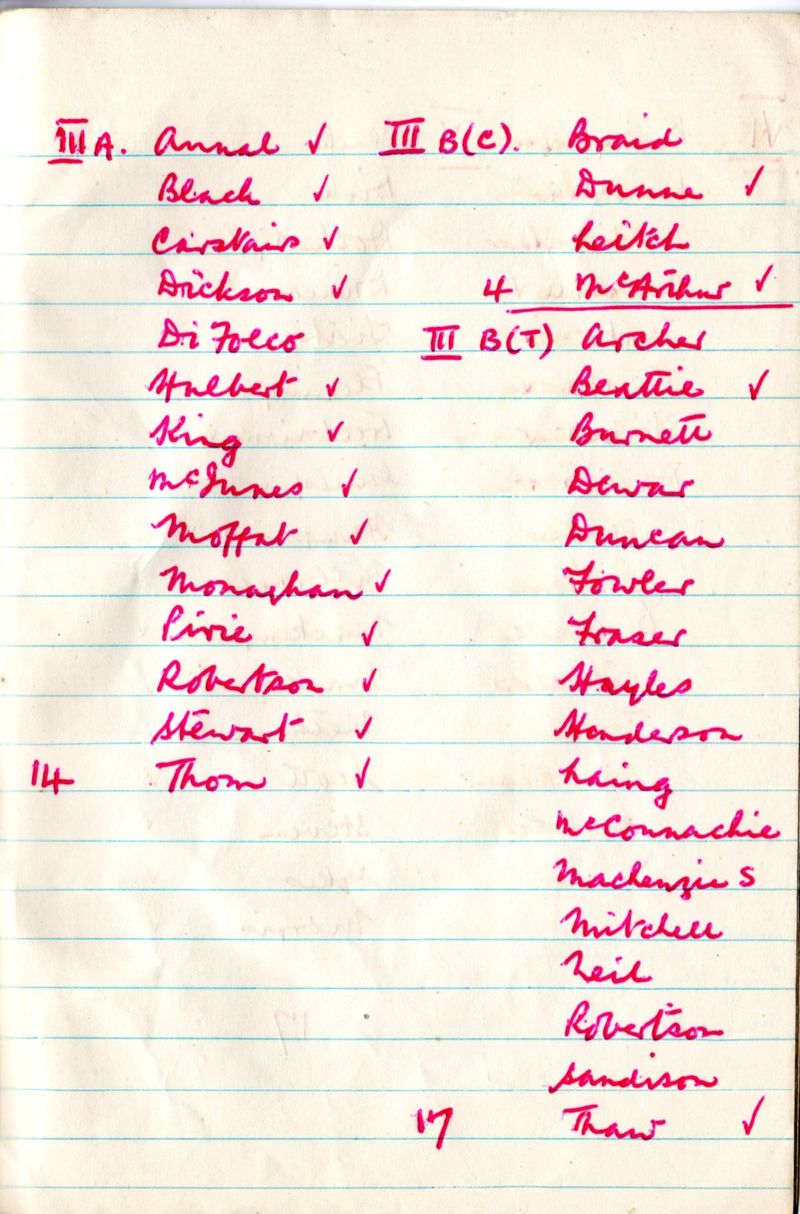 III A. Annal ✓
Black ✓
Carstairs ✓
Dickson ✓
Di Folco
Halbert ✓
King ✓
McInnes ✓
Moffat ✓
Monaghan ✓
Pirie ✓
Robertson ✓
Stewart ✓
14 Thom ✓
III B(C). Braid
Dunne ✓
Leitch
4 McArthur ✓
III B(T) Archer
Beattie ✓
Burnett
Dewar
Duncan
Fowler
Fraser
Hayles
Henderson
Laing
McConnachie
Mackenzie S
Mitchell
Neil
Robertson
Sandison
17 Thaw ✓